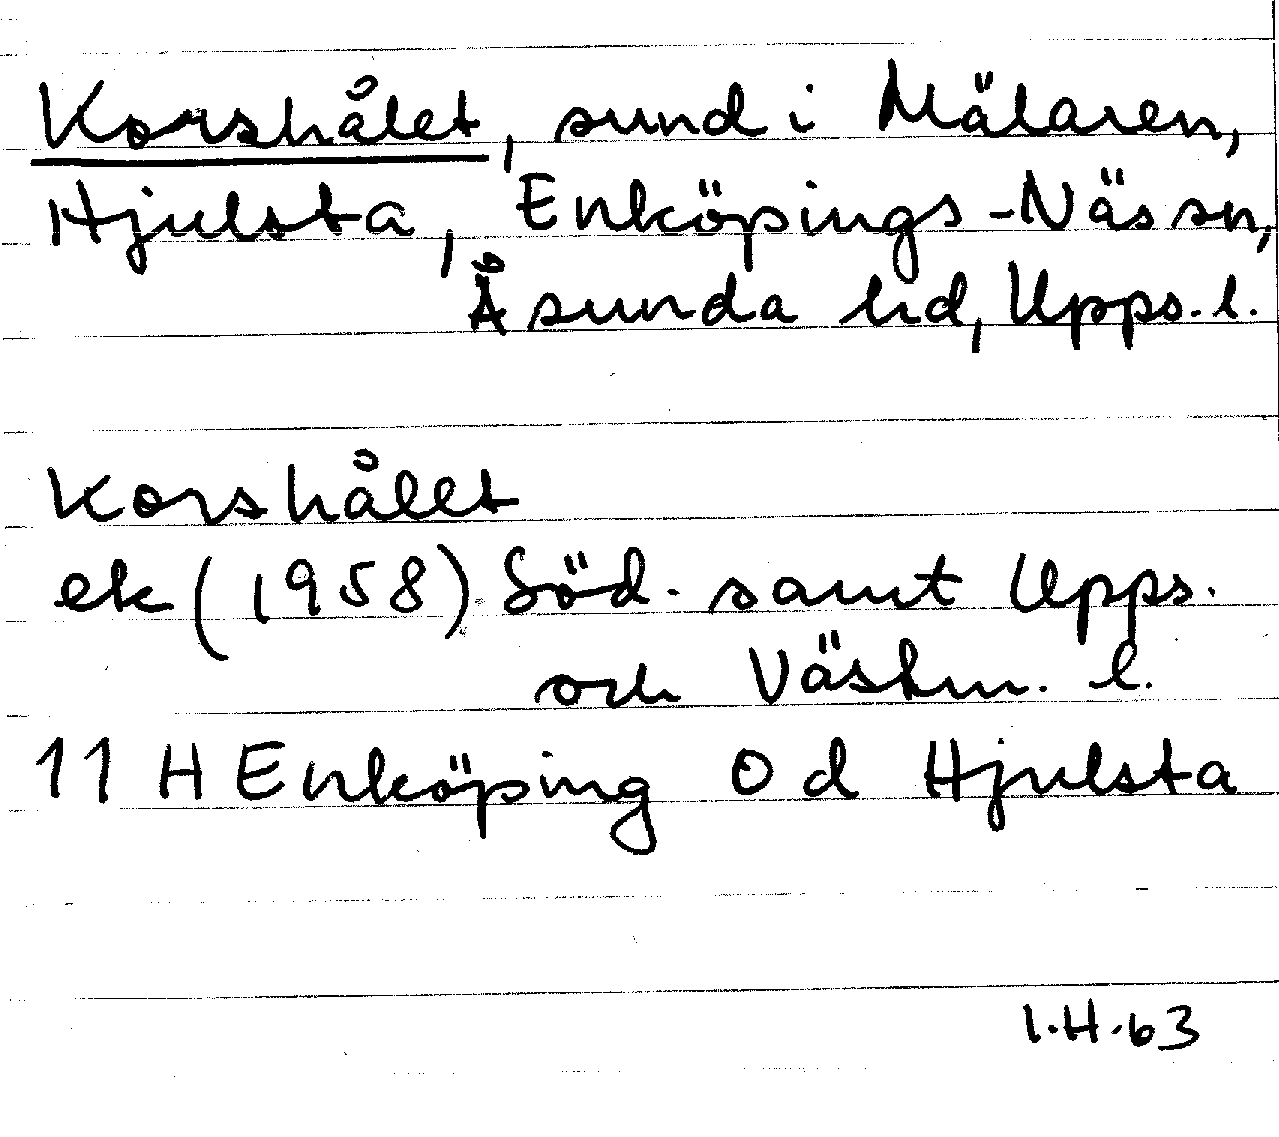 Korshålet, sund i Mälaren,
Hjulsta, Enköpings-Näs sn,
Åsunda hd, Upps. l.
Korshålet
ek (1958) Söd. samt Upps.
och Västm. l.
11 H Enköping 0 d Hjulsta
I.H.63